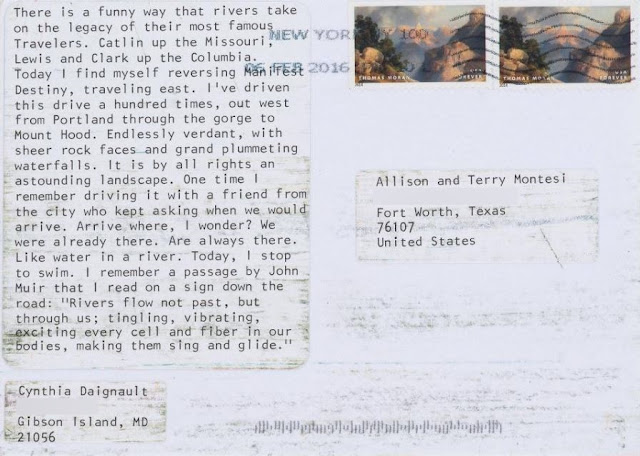 There is a funny way that rivers take
on the legacy of their most famous
Travelers. Catlin up the Missouri,
Lewis and Clark up the Columbia.
Today I find myself reversing Manifest
Destiny, traveling east. I've driven
this drive a hundred times, out west
from Portland through the gorge to
Mount Hood. Endlessly verdant, with
sheer rock faces and grand plummeting
waterfalls. It is by all rights an
astounding landscape. One time I
remember driving it with a friend from
the city who kept asking when we would
arrive. Arrive where, I wonder? We
were already there. Are always there.
Like water in a river. Today, I stop
to swim. I remember a passage by John
Muir that I read on a sign down the
road: "Rivers flow not past, but
through us; tingling, vibrating,
exciting every cell and fiber in our
bodies, making them sing and glide."
NEW YORK NY 100
06 FEB 2016
THOMAS MORAN
USA
FOREVER
THOMAS MORAN
USA
FOREVER
Allison and Terry Montesi
Fort Worth, Texas
76107
United States
Cynthia Daignault
Gibson Island, MD
21056